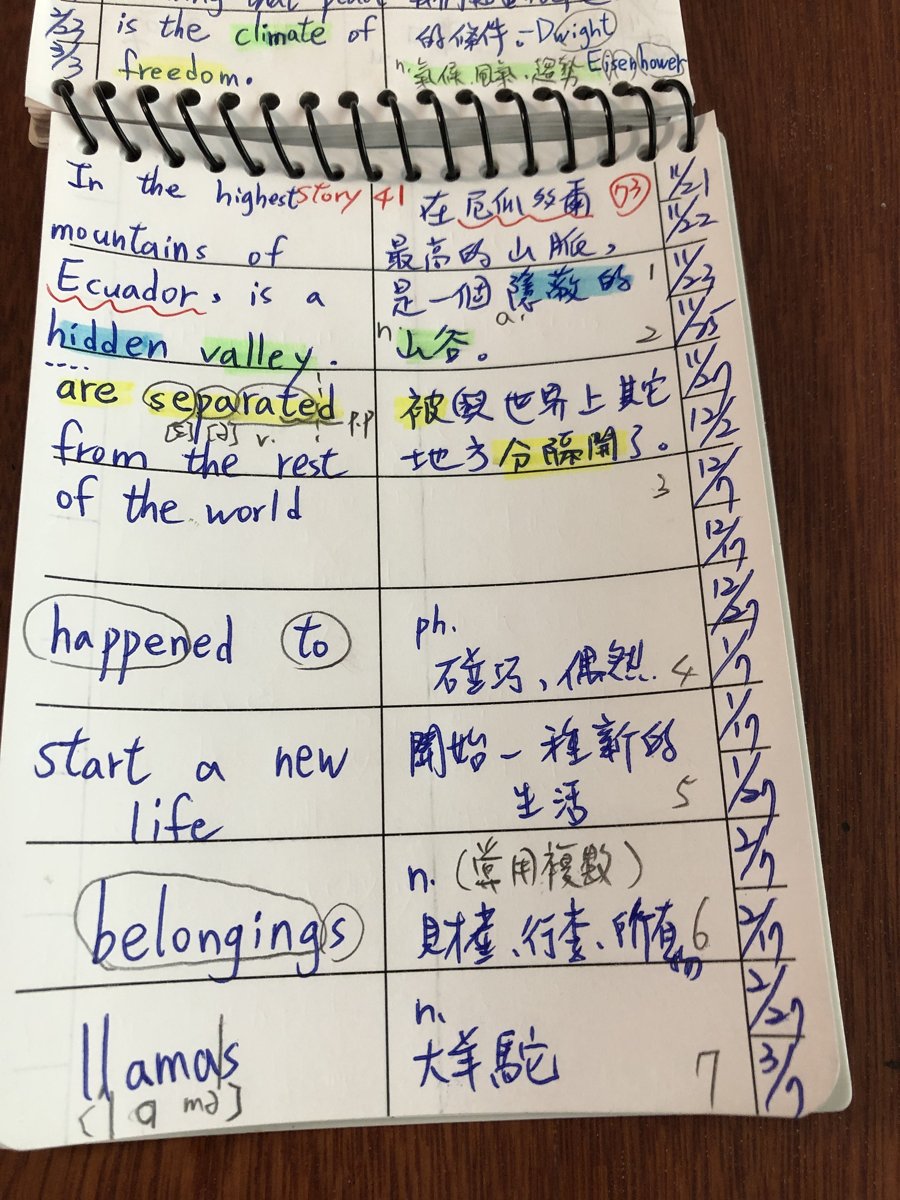 is the climate of
freedom.
的條件。-Dwight
n. 氣候、風氣、趨勢 Eisenhower
2/23
3/3
In the highest story 41
mountains of
Ecuador, is a
hidden valley.
在厄瓜多爾 73
最高的山脈,
是一個隱蔽的 1
n. a.
山谷。 2
are separated
[ɛ] [ə] v. p.p
from the rest
of the world
被與世界上其它
地方分隔開了。
3
happened to
ph.
碰巧、偶然 4
start a new
life
開始一種新的
生活 5
belongings
n. (常用複數)
財產、行李、所有物 6
llamas
[lɑmə]
n.
大羊駝 7
11/21
11/22
11/23
11/25
11/27
12/2
12/7
12/17
12/27
1/7
1/17
1/27
2/7
2/17
2/27
3/7